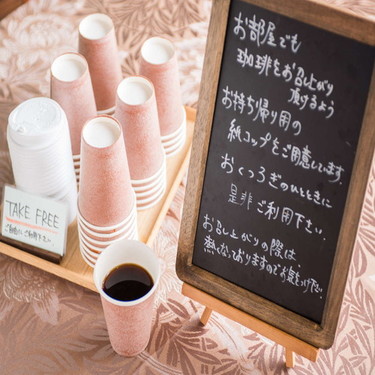 お部屋でも
珈琲をお召し上がり
頂けるよう
お持ち帰り用の
紙コップをご用意しています。
おくつろぎのひとときに
是非ご利用下さい。
お召し上がりの際は
熱くなっておりますのでお気をつけ下さい。
TAKE FREE
ご自由に
ご利用下さい